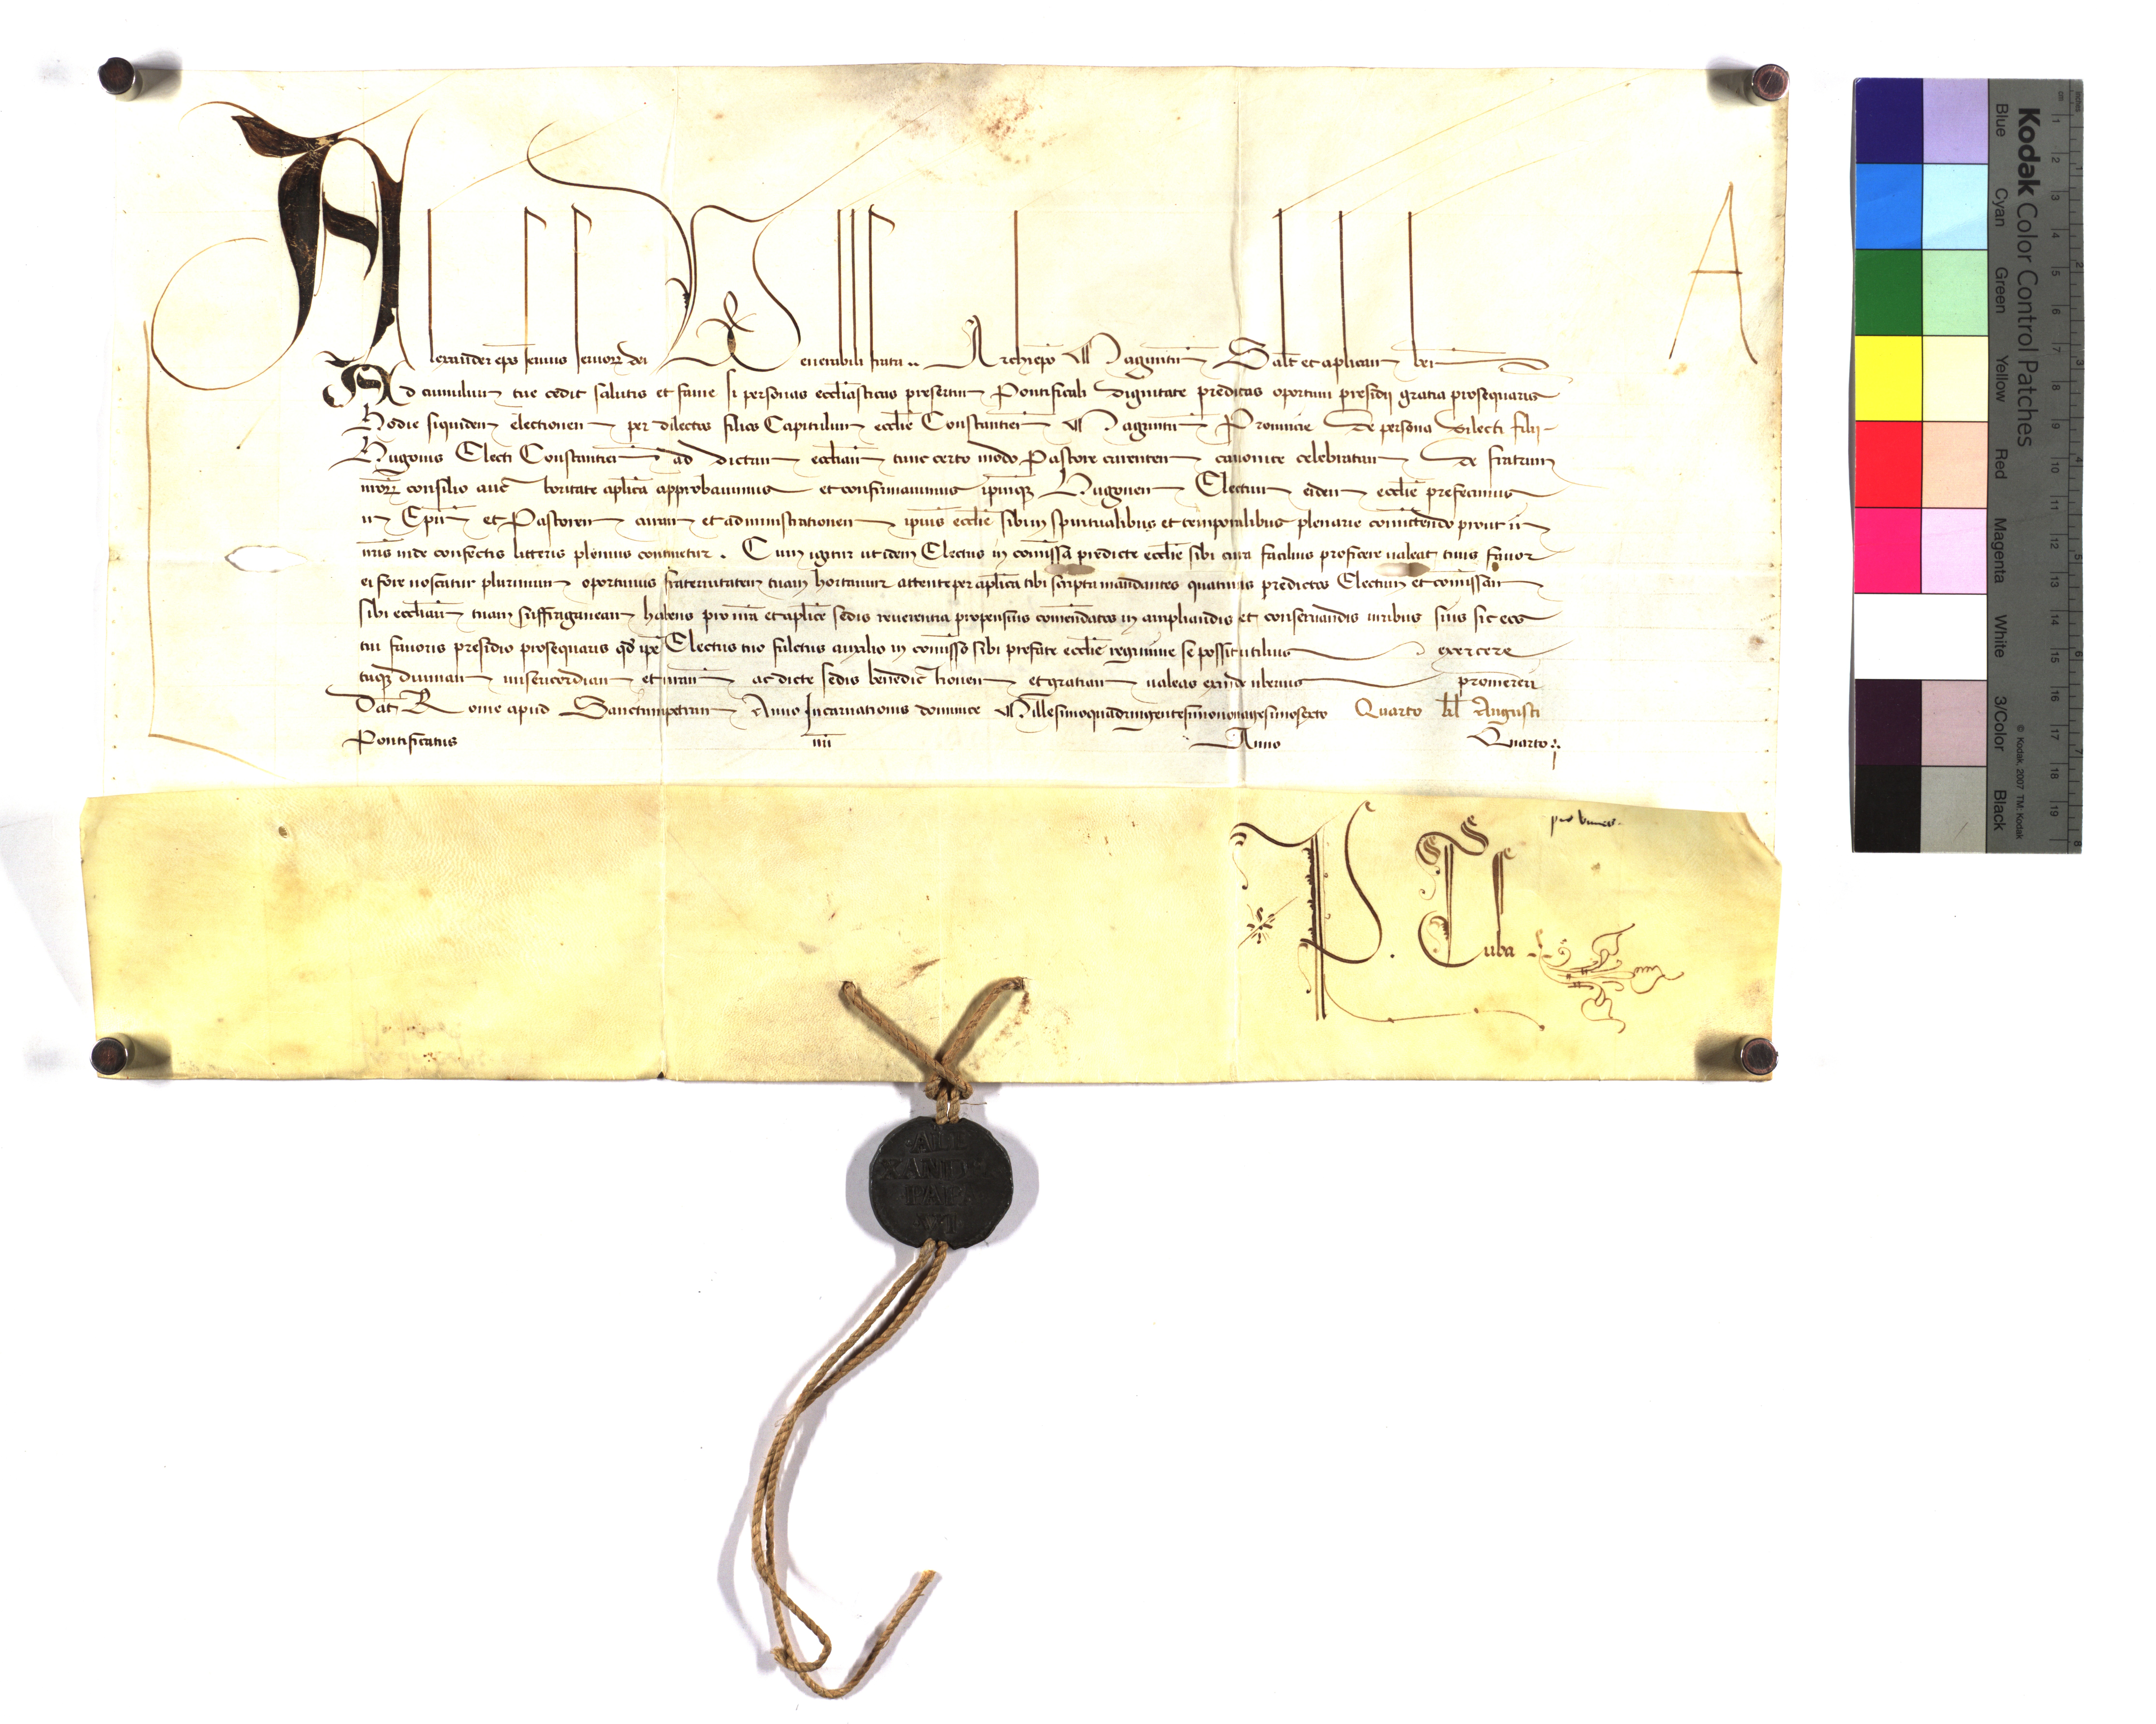 A
Alexander eps seruus seruor dei Venerabili fratri .. Archiepo Maguntin Salt et aplicam ben
Ad cumulum tue cedit salutis et fame si personas ecclesiasticas presertim Pontificali dignitate preditas oportuni presidij gratia prosequaris
Hodie siquidem electionem per dilectos filios Capitulum ecclie Constantien Maguntin Prouincie de persona dilecti filij
Hugonis Electi Constantien ad dictam eccliam tunc certo modo Pastore carentem canonice celebratam de fratrum
nror consilio auctoritate aplica approbauimus et confirmauimus ipmq Hugonem Electum eidem ecclie prefecimus
in Epm et Pastorem curam et administrationem ipius ecclie sibi in spiritualibus et temporalibus plenarie comittendo prout in
nris inde confectis litteris plenius continetur . Cum igitur ut idem Electus in comissa predicte ecclie sibi cura facilius proficere ualeat tuus fauor
ei fore noscatur plurimum oportunus fraternitatem tuam hortamur attente per aplica tibi scripta mandantes quatinus predictos Electum et comissam
sibi eccliam tuam suffraganeam habens pro nra et aplice sedis reuerentia propensius comendatos in ampliandis et conseruandis iuribus suis sic eos
tui fauoris presidio prosequaris qd ipe Electus tuo fulctus auxilio in comisso sibi prefate ecclie regimine se possit utilius exercere
tuq diuinam misericordiam et nram ac dicte sedis benedic honem et gratiam ualeas exinde uberius promereri
Dat Rome apud Sanctumpetrum Anno Incarnationis dominice Millesimoquadringentesimononagesimosexto Quarto kl Augusti
Pontificatus nri Anno Quarto :
P. Tuba
ALE
XANDER
PAPA
VI
Kodak Color Control Patches
Blue Cyan Green Yellow Red Magenta White 3/Color Black
© Kodak, 2007 TM: Kodak
cm 1 2 3 4 5 6 7 8 9 10 11 12 13 14 15 16 17 18 19
inches 1 2 3 4 5 6 7 8